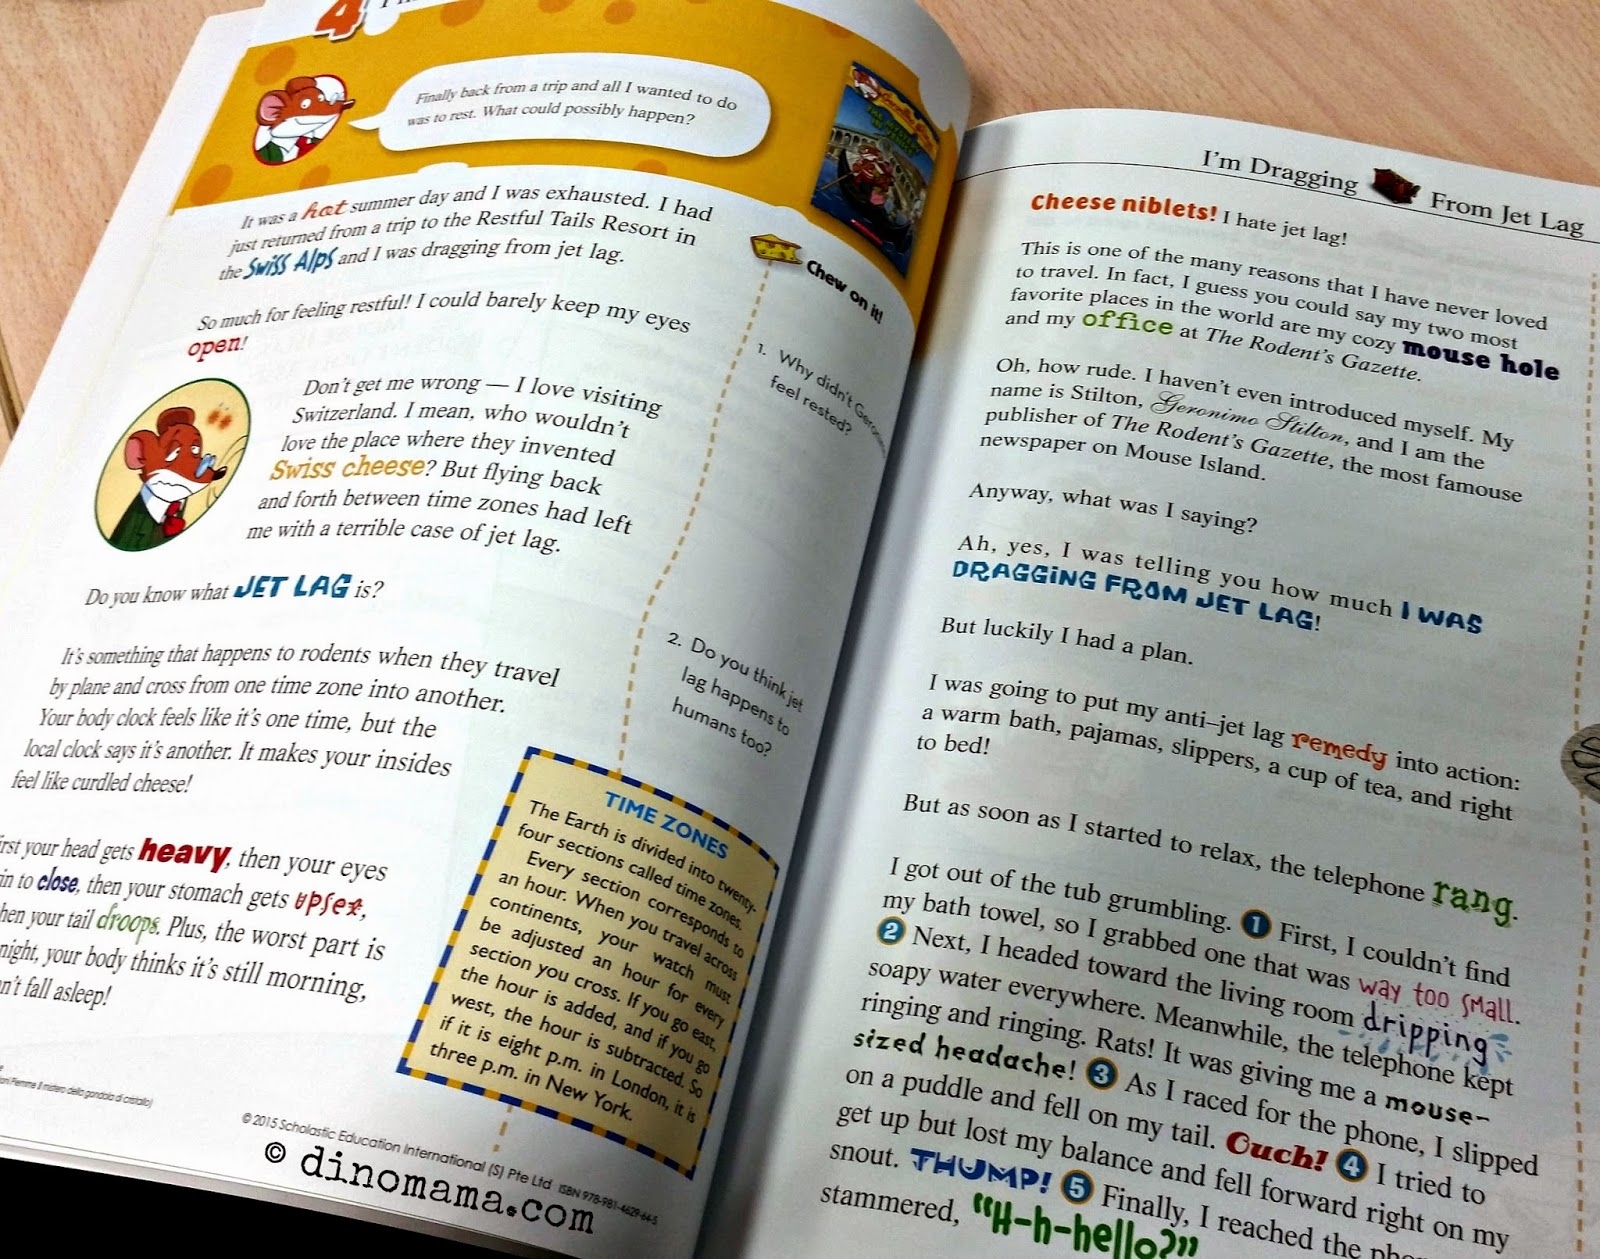 4
Finally back from a trip and all I wanted to do
was to rest. What could possibly happen?
It was a hot summer day and I was exhausted. I had
just returned from a trip to the Restful Tails Resort in
the Swiss Alps and I was dragging from jet lag.
So much for feeling restful! I could barely keep my eyes
open!
Don't get me wrong — I love visiting
Switzerland. I mean, who wouldn't
love the place where they invented
Swiss cheese? But flying back
and forth between time zones had left
me with a terrible case of jet lag.
Do you know what JET LAG is?
It's something that happens to rodents when they travel
by plane and cross from one time zone into another.
Your body clock feels like it's one time, but the
local clock says it's another. It makes your insides
feel like curdled cheese!
your head gets heavy, then your eyes
to close, then your stomach gets upset,
your tail droops. Plus, the worst part is
night, your body thinks it's still morning,
fall asleep!
Chew on it!
1. Why didn't
feel rested?
2. Do you think jet
lag happens to
humans too?
TIME ZONES
The Earth is divided into twenty-
four sections called time zones.
Every section corresponds to
an hour. When you travel across
continents, your watch must
be adjusted an hour for every
section you cross. If you go east,
the hour is added, and if you go
west, the hour is subtracted. So
if it is eight p.m. in London, it is
three p.m. in New York.
Piemme Il mistero della gondola di cristallo)
© 2015 Scholastic Education International (S) Pte Ltd ISBN 978-981-4629-64-5
© dinomama.com
I'm Dragging From Jet Lag
Cheese niblets! I hate jet lag!
This is one of the many reasons that I have never loved
to travel. In fact, I guess you could say my two most
favorite places in the world are my cozy mouse hole
and my office at The Rodent's Gazette.
Oh, how rude. I haven't even introduced myself. My
name is Stilton, Geronimo Stilton, and I am the
publisher of The Rodent's Gazette, the most famouse
newspaper on Mouse Island.
Anyway, what was I saying?
Ah, yes, I was telling you how much I WAS
DRAGGING FROM JET LAG!
But luckily I had a plan.
I was going to put my anti–jet lag remedy into action:
a warm bath, pajamas, slippers, a cup of tea, and right
to bed!
But as soon as I started to relax, the telephone rang.
I got out of the tub grumbling. 1 First, I couldn't find
my bath towel, so I grabbed one that was way too small.
2 Next, I headed toward the living room dripping
soapy water everywhere. Meanwhile, the telephone kept
ringing and ringing. Rats! It was giving me a mouse-
sized headache! 3 As I raced for the phone, I slipped
on a puddle and fell on my tail. Ouch! 4 I tried to
get up but lost my balance and fell forward right on my
snout. THUMP! 5 Finally, I reached the
stammered, "H-h-hello?"